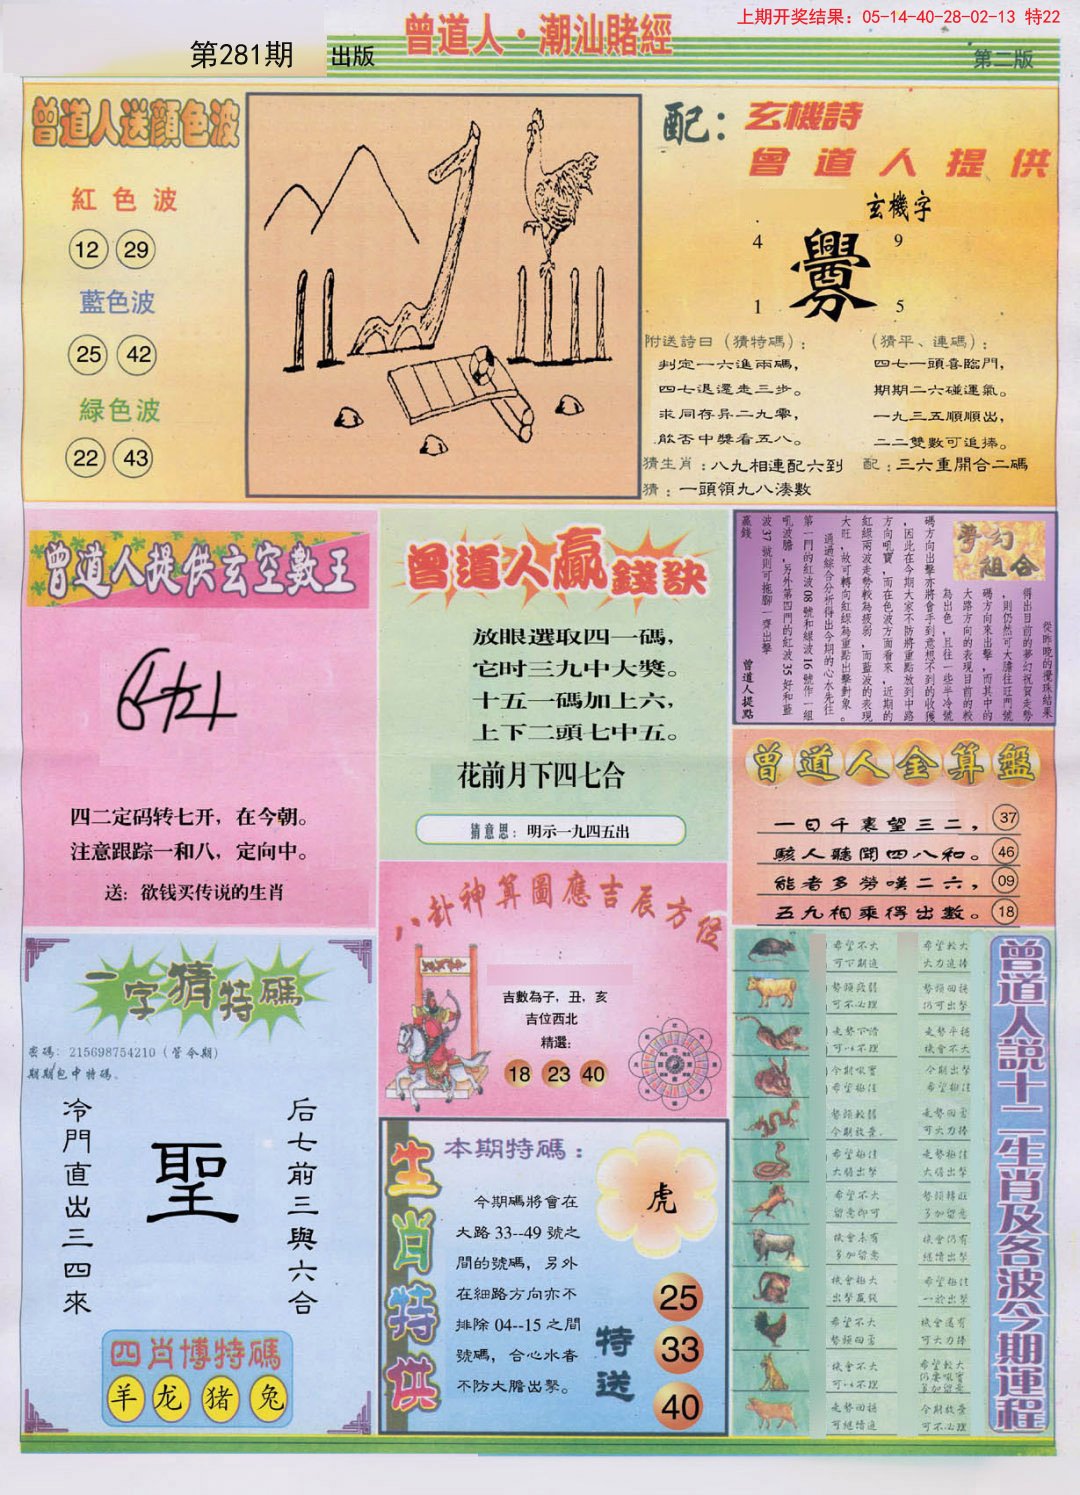 上期开奖结果：05-14-40-28-02-13 特22
第281期 出版
曾道人·潮汕賭經
第二版
曾道人送顔色波
紅色波
12 29
藍色波
25 42
緑色波
22 43
配：玄機詩
曾道人提供
玄機字
4 9
爨
1 5
附送詩曰（猜特碼）：
判定一六進兩碼，
四七退還走三步。
求同存异二九零，
能否中獎看五八。
（猜平、連碼）：
四七一頭喜臨門，
期期二六碰運氣。
一九三五順順出，
二二雙數可追捧。
猜生肖：八九相連配六到
配：三六重開合二碼
猜：一頭領九八湊數
曾道人提供玄空數王
四二定码转七开，在今朝。
注意跟踪一和八，定向中。
送：欲钱买传说的生肖
曾道人贏錢訣
放眼選取四一碼，
它时三九中大獎。
十五一碼加上六，
上下二頭七中五。
花前月下四七合
猜意思：明示一九四五出
夢幻組合
從昨晚的攪珠結果
得出目前的夢幻祝賀走勢
，則仍然可大膽往旺門號
碼方向來出擊，而其中的
大路方向的表現目前的較
為出色，且往一些半冷號
碼方向出擊亦將會手到意想不到的收獲
，因此在今期大家不防將重點放到中路
方向吼寶，而在色波方面看來，近期的
紅綠兩波走勢較為疲弱，而藍波的表現
大旺，故可轉向紅綠為重點出擊對象。
通過綜合分析得出今期的心水先往
第一門的紅波08號和綠波16號作一組
吼波膽，另外第四門的紅波35好和藍
波37號則可拖腳一齊出擊
贏錢
曾道人提點
曾道人全算盤
一日千裏望三二，37
駭人聽聞四八和。46
能者多勞嘆二六，09
五九相乘得出數。18
八卦神算圖應吉辰方位
吉數為子，丑，亥
吉位西北
精選：
18 23 40
一字猜特碼
密碼：215698754210（管今期）
期期包中特碼。
冷門直出三四來
聖
后七前三與六合
四肖博特碼
羊 龙 猪 兔
生肖特供
本期特碼：
今期碼將會在
大路33--49號之
間的號碼，另外
在細路方向亦不
排除04--15之間
號碼，合心水者
不防大膽出擊。
虎
特送
25
33
40
曾道人說十二生肖及各波今期運程
希望不大
可下期追
希望較大
大力追捧
勢頭疲弱
可不必理
勢頭回揚
仍可出擊
走勢下滑
可以不理
走勢平穩
機會不大
今期吼實
希望極佳
今期出擊
希望極佳
勢頭較弱
今期放棄
走勢回勇
可大力捧
希望極佳
大膽出擊
走勢極佳
大膽出擊
希望不大
留意即可
勢頭轉旺
多加留意
機會未有
多加留意
機會仍有
繼續出擊
機會極大
出擊贏錢
希望極佳
一於出擊
希望不大
勢頭回勇
機會還有
可大力捧
機會不大
可以不理
希望較大
仍要吼實
多加留意
走勢回穩
可繼續追
今期放棄
可不必理